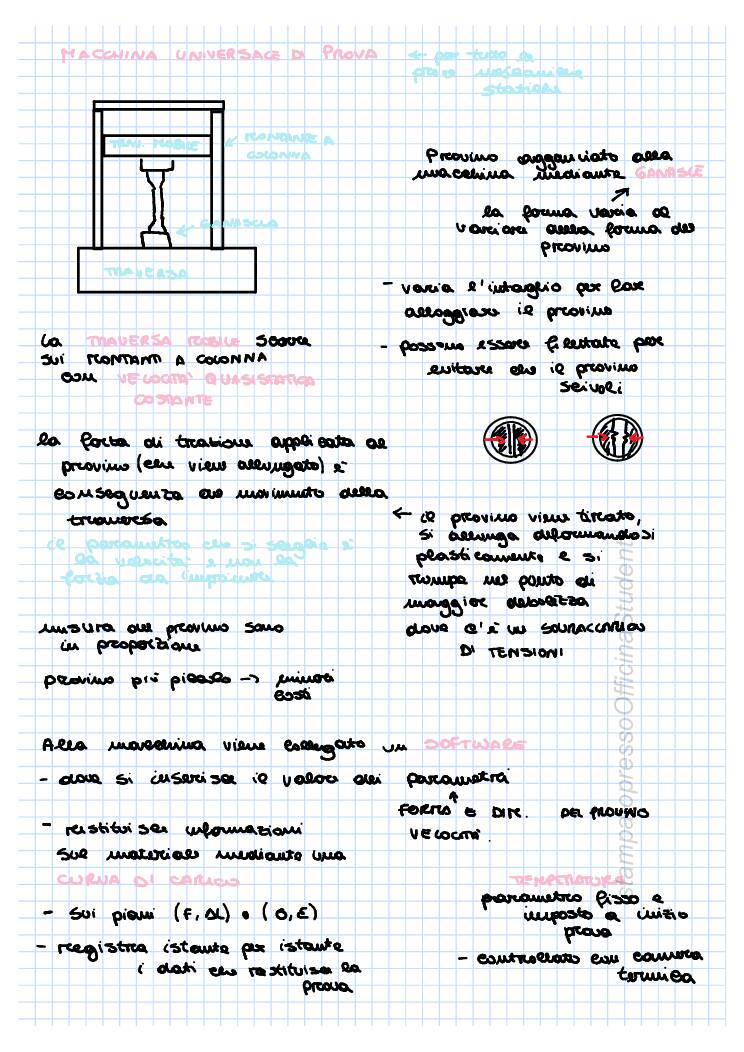 MACCHINA UNIVERSALE DI PROVA
← per tutte le
prove meccaniche
statiche
TRAV. MOBILE
MONTANTE A
COLONNA
GANASCIA
TRAVERSA
Provino agganciato alla
macchina mediante GANASCE
la forma varia al
variare della forma del
provino
- varia l'intaglio per far
alloggiare il provino
- possono essere filettata per
evitare che il provino
scivoli
La TRAVERSA MOBILE scorre
sui MONTANTI A COLONNA
con VELOCITA' QUASISTATICA
COSTANTE
la forza di trazione applicata al
provino (che viene allungato) è
conseguenza del movimento della
traversa
il parametro che si sceglie è
la velocità e non la
forza da imprimere
← il provino viene tirato,
si allunga deformandosi
plasticamente e si
rompe nel punto di
maggior debolezza
dove c'è un SOVRACCARICO
DI TENSIONI
misura del provino sono
in proporzione
provino più piccolo -> minori
costi
Alla macchina viene collegato un SOFTWARE
- dove si inserisce il valore dei parametri
↑
FORMA E DIM. DEL PROVINO
VELOCITÀ.
- restituisce informazioni
sul materiale mediante una
CURVA DI CARICO
- sui piani (F, ΔL) o (σ, ε)
- registra istante per istante
i dati che restituisce la
prova
TEMPERATURA
parametro fisso e
imposto a inizio
prova
- controllato con camera
termica
stampatopressoOfficinaStudenti